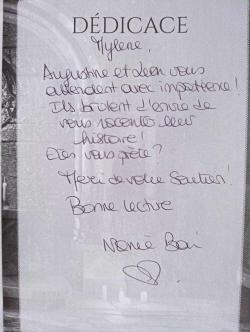 DÉDICACE
Mylène,
Augustine et Léon vous
attendent avec impatience !
Ils brûlent d'envie de
vous raconter leur
histoire !
Etes vous prête ?
Merci de votre soutien !
Bonne lecture